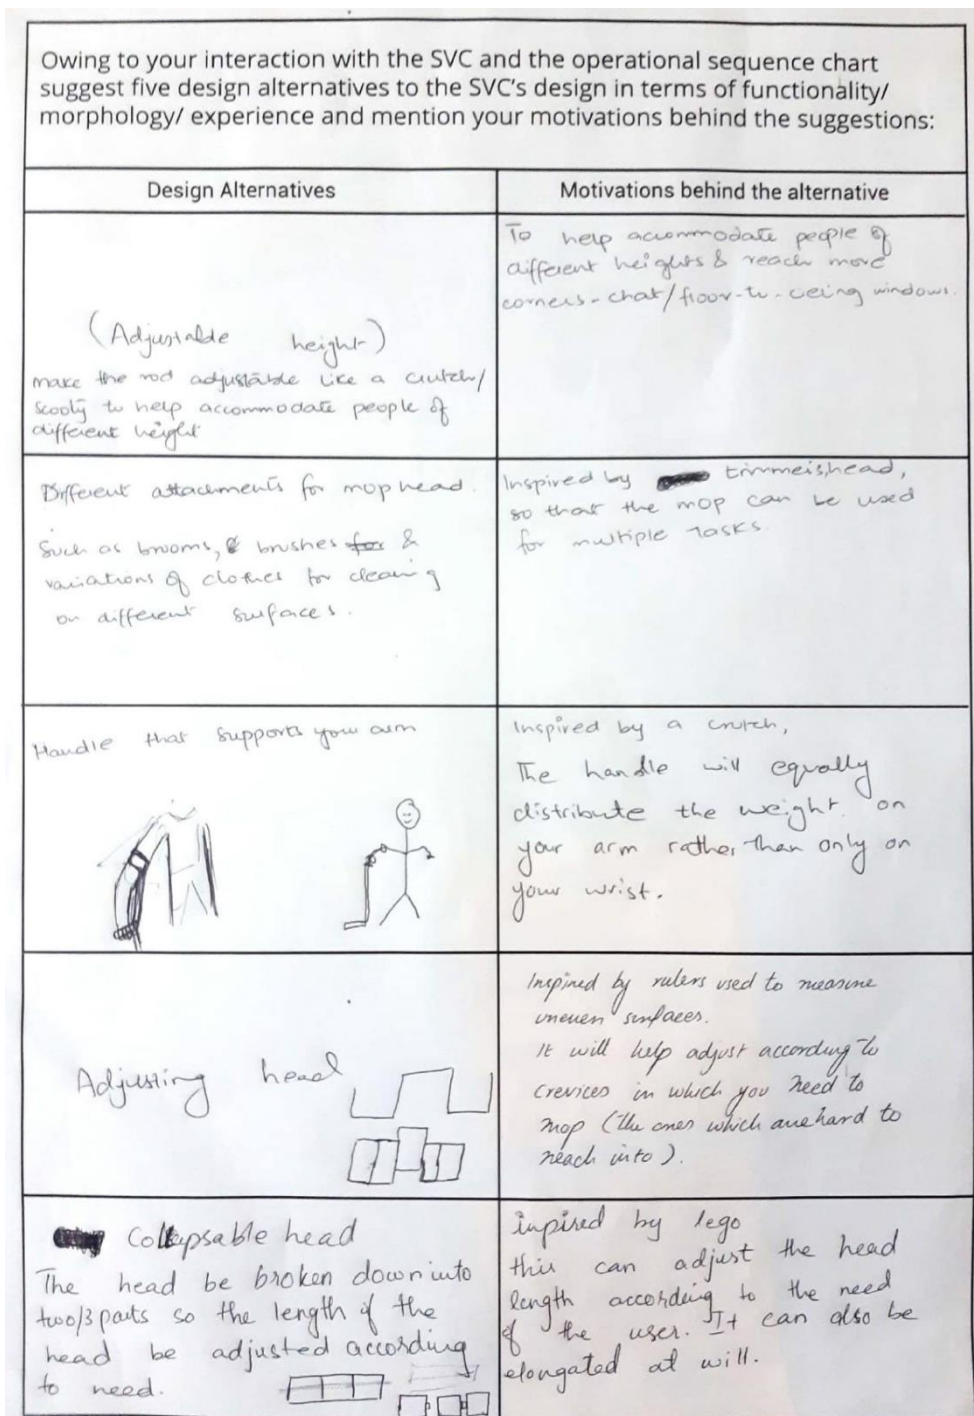 Owing to your interaction with the SVC and the operational sequence chart
suggest five design alternatives to the SVC's design in terms of functionality/
morphology/ experience and mention your motivations behind the suggestions:
Design Alternatives
Motivations behind the alternative
(Adjustable height)
make the rod adjustable like a crutch/
to help accommodate people of
different height
To help accommodate people of
different heights & reach more
corners - /floor-to-ceing windows.
Different attacements for mop head.
Such as brooms, brushes for &
variations of clothes for cleaning
on different surfaces.
Inspired by head,
so that the mop can be used
for multiple tasks.
Handle that supports your arm
Inspired by a crutch,
The handle will equally
distribute the weight on
your arm rather than only on
your wrist.
Adjusting head
Inspired by rulers used to measure
uneven surfaces.
It will help adjust according to
crevices in which you need to
mop (the ones which are hard to
reach into).
Collapsable head
The head be broken down into
two/3 parts so the length of the
head be adjusted according
to need.
inpired by lego
this can adjust the head
length according to the need
of the user. It can also be
elongated at will.